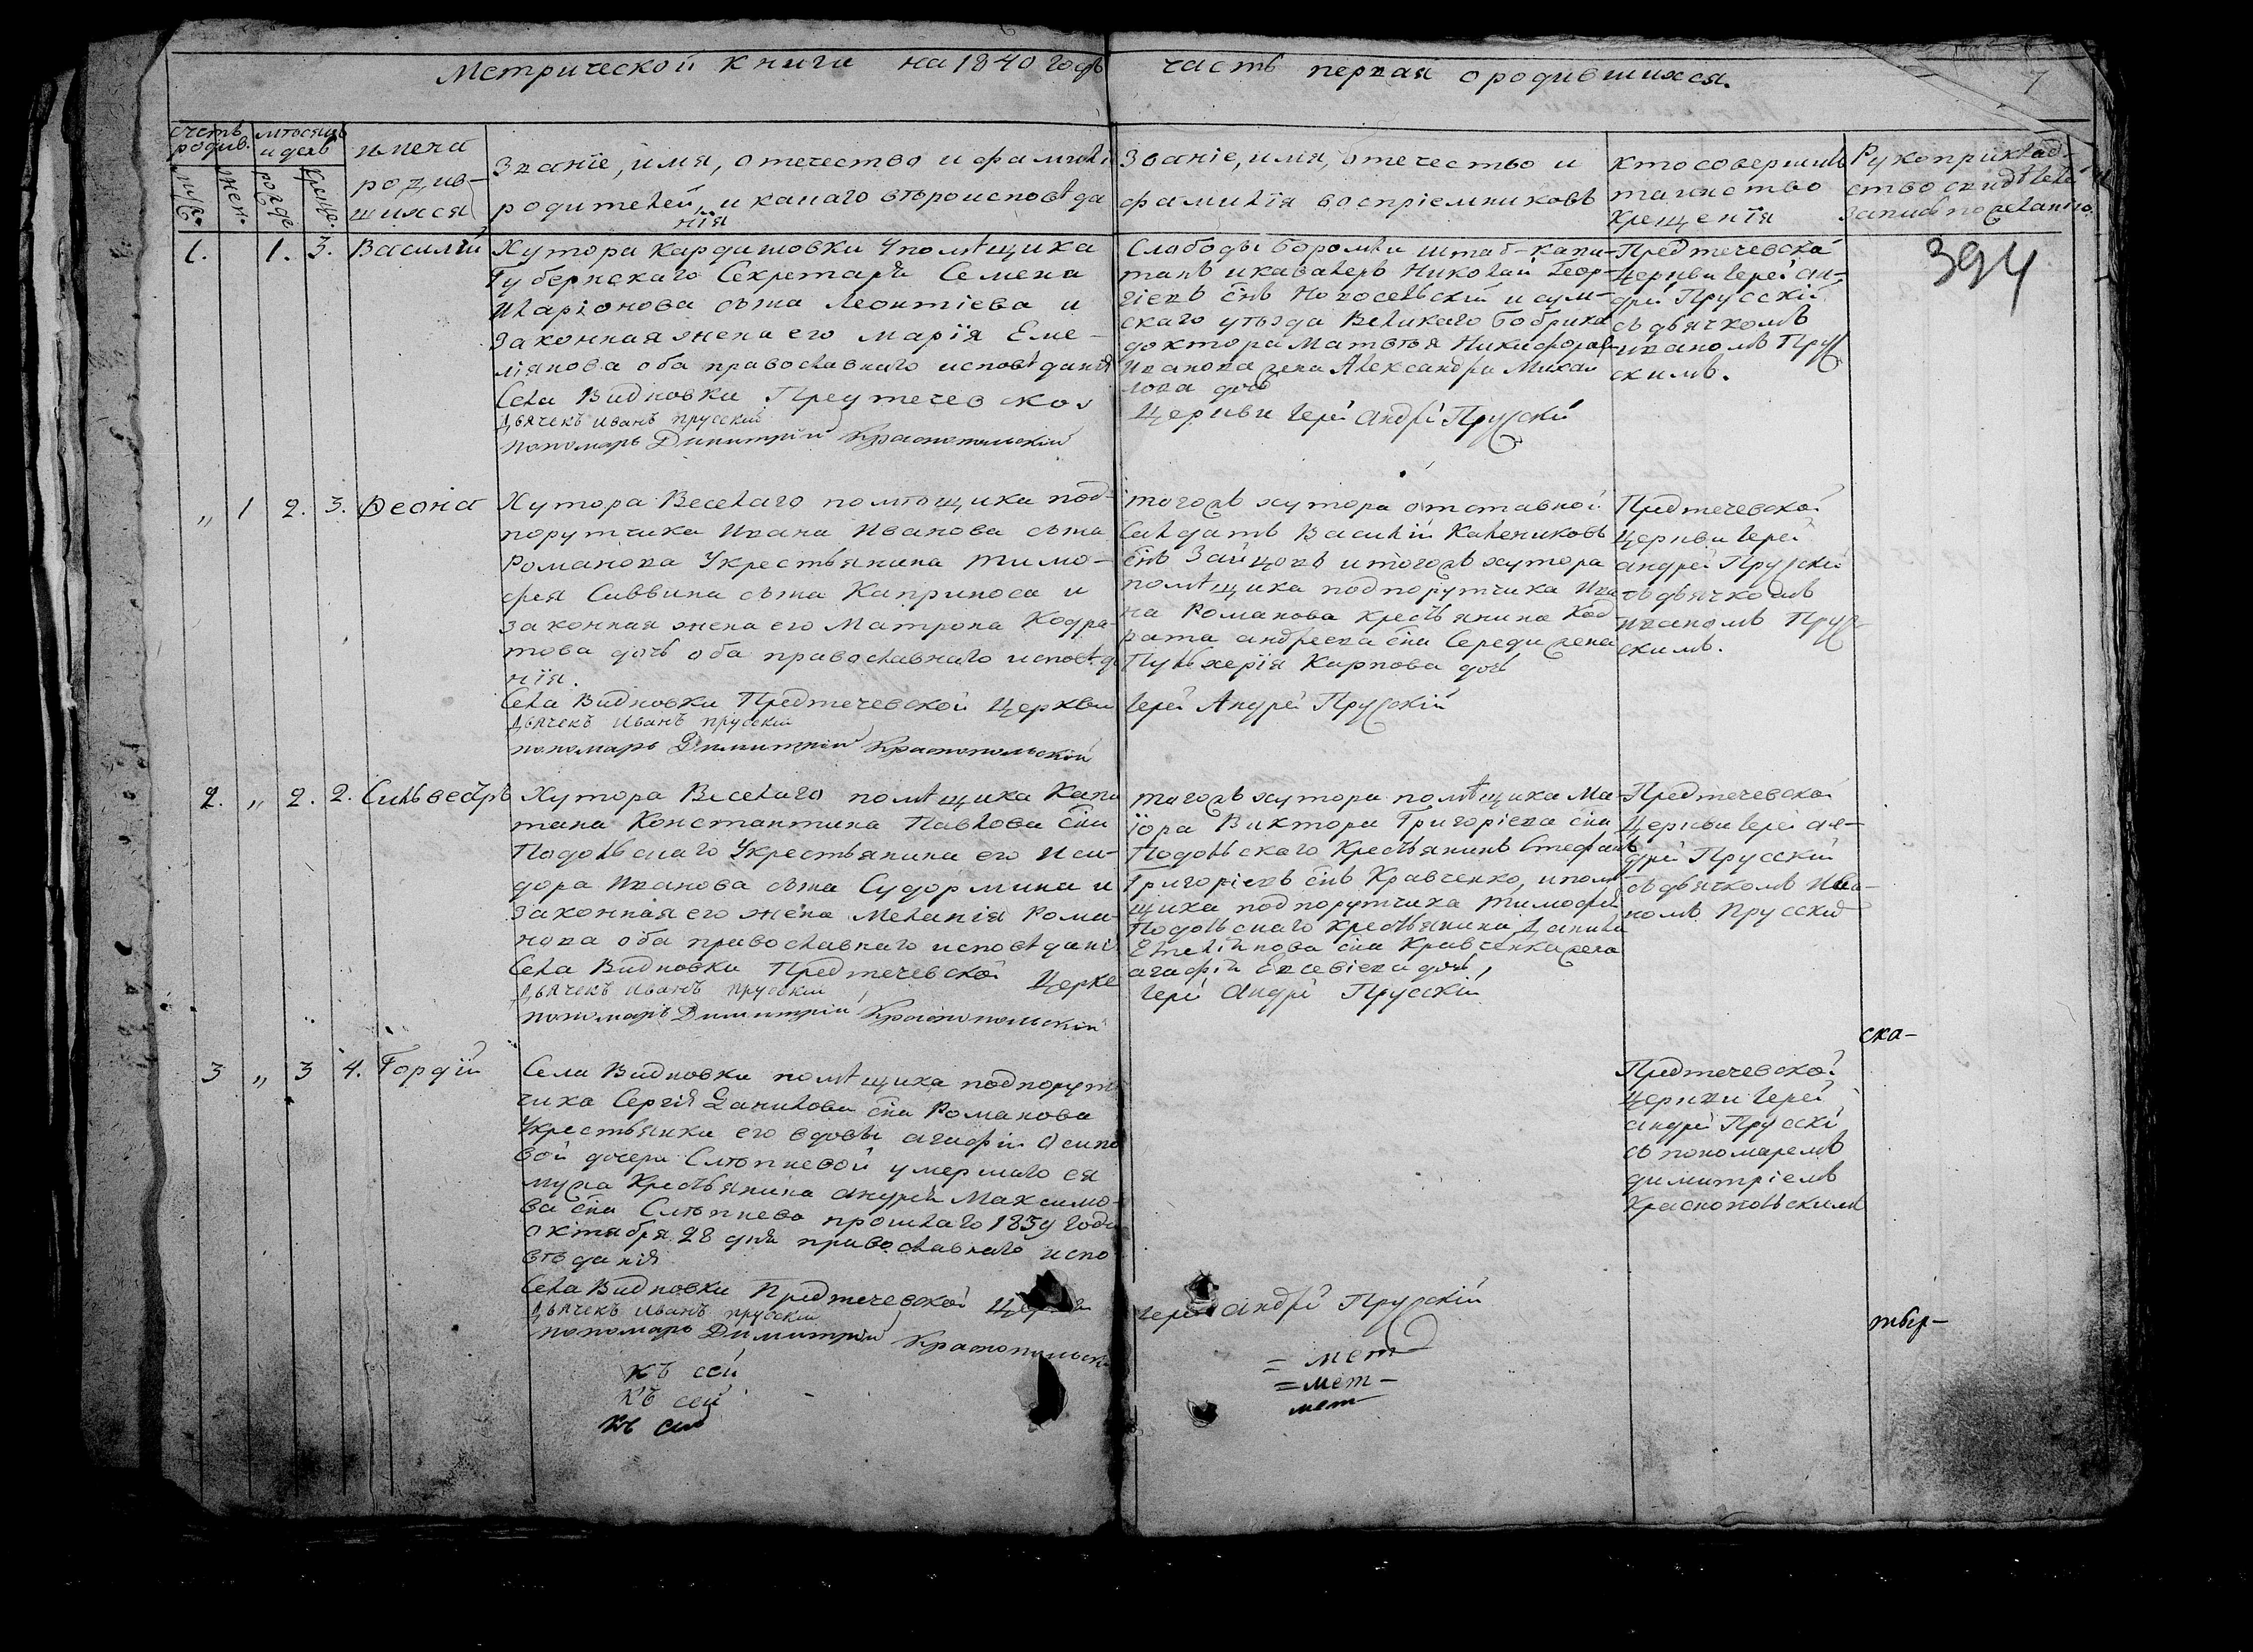 Метрической книги на 1840 годъ часть первая о родившихся.
7
394
счетъ родив. мѣсяцъ и день
муж. жен. рожде крещ.
имена родив-
шихся
Званїе, имя, отечество и фамилїи
родителей, и какаго вѣроисповѣда
нїя
Званіе, имя, отечество и
фамилїя воспріемниковъ
Кто совершилъ
таинство
Крещенїя
Рукоприклад-
ство свидѣтелей
записи по желанїю
1. 1. 3. Василій
Хутора Кардашовки Упомѣщика
Губернскаго Секретаря Семена
Иларіонова сына Леонтіева и
Законная жена его Марїя Еме-
ліянова оба православнаго исповѣданія
Села Видновки Предтечевской
Дьячекъ Иванъ Прусскій
Пономарь Димитрій Краснопольскій
Слободы Боромли штаб-капи-
танъ и кавалеръ Николай Геор-
гіевъ снъ Новосельскій и сум-
скаго уѣзда Великаго Бобрика
доктора Матвѣя Никифоров
Иванова жена Александра Михаи
лова дочь
Церкви Іерей Андрей Прусскій
Предтечевской
Церкви Іерей Ан-
дрей Прусскій
съ дьячкомъ
Иваномъ Прус
скимъ.
„ 1 2. 3. Ѳеона
Хутора Веселаго помѣщика под-
порутчика Ивана Иванова сына
Романова Укрестьянина Тимо-
фея Саввина сына Каприноса и
законная жена его Матрона Кодра-
това дочь оба православнаго исповѣда
нїя.
Села Видновки Предтечевской Церкви
Дьячекъ Иванъ Прусскій
пономарь Димитрій Краснопольскій
тогожъ хутора отставной
Салдатъ Василій Калениковъ
снъ Зайцовъ и тогожъ хутора
помѣщика подпорутчика Ива
на Романова крестьянина Код
рата Андреева сна Середи жена
Пульхерїя Карпова дочь
Іерей Андрей Прусскій
Предтечевской
Церкви Іерей
Андрей Прусскій
съ дьячкомъ
Иваномъ Прус
скимъ.
2. „ 2. 2. Сильвестръ
Хутора Веселаго помѣщика Капи
тана Константина Павлова сна
Подольскаго Укрестьянина его Иси-
дора Иванова сына Судормина и
Законная его жена Меланїя Рома-
нова оба православнаго исповѣдані
Села Видновки Предтечевской Церкв
Дьячекъ Иванъ Прусскій
пономарь Димитрій Краснопольскій
тогожъ хутора помѣщика Ма-
їора Виктора Григоріева сна
Подольскаго Крестьянинъ Стефанъ
Григоріевъ снъ Кравченко, и помѣ
щика подпорутчика Тимофея
Подольскаго крестьянина Данила
Емеліянова сна Кравченка жена
Агафія Евсевіева дочь,
Іерей Андрей Прусскій
Предтечевской
Церкви Іерей Ан-
дрей Прусскій
съ дьячкомъ Ива-
номъ Прусски
ска-
3 „ 3 4. Гордїй
Села Видновки помѣщика подпорут
чика Сергія Данилова сна Романова
Укрестьянки его вдовы Агафіи Осипо
вой дочери Слѣпневой умершаго ея
мужа Крестьянина Андрея Максимо-
ва сна Слѣпнева прошлаго 1839 года
октября 28 дня православнаго испо
вѣданія
Села Видновки Предтечевской Церкви
Дьячекъ Иванъ Прусскій
пономарь Димитрій Краснопольскі
Іерей Андрей Прусскій
Предтечевской
Церкви Іерей
Андрей Прусскі
съ пономаремъ
димитріемъ
Краснопольскимъ
тыр-
Къ сей = мет
Къ сей =мет-
Къ сей мет